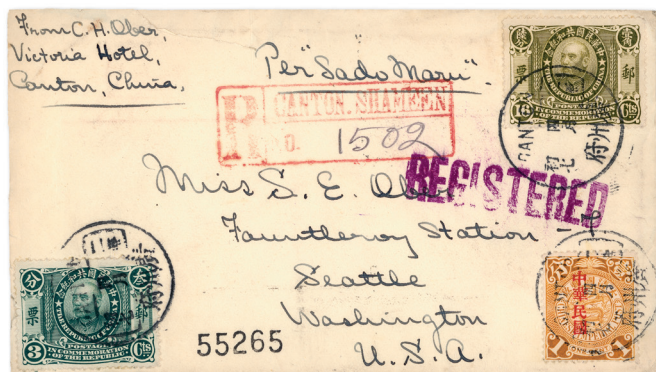 From C. H. Ober,
Victoria Hotel,
Canton, China,
Per "Sado Maru".
R
CANTON. SHAMEEN
No. 1502
REGISTERED
Miss S. E. Ober
Fauntleroy Station
Seattle
Washington
U. S. A.
55265
16 Cts
THE REPUBLIC OF CHINA
POSTAGE
IN COMMEMORATION
OF THE REPUBLIC
郵
票
CANTON
廣州府
分
叁
票
郵
THE REPUBLIC OF CHINA
POSTAGE
3 Cts
IN COMMEMORATION
OF THE REPUBLIC
廣州府
中華民國
1
1
廣州府